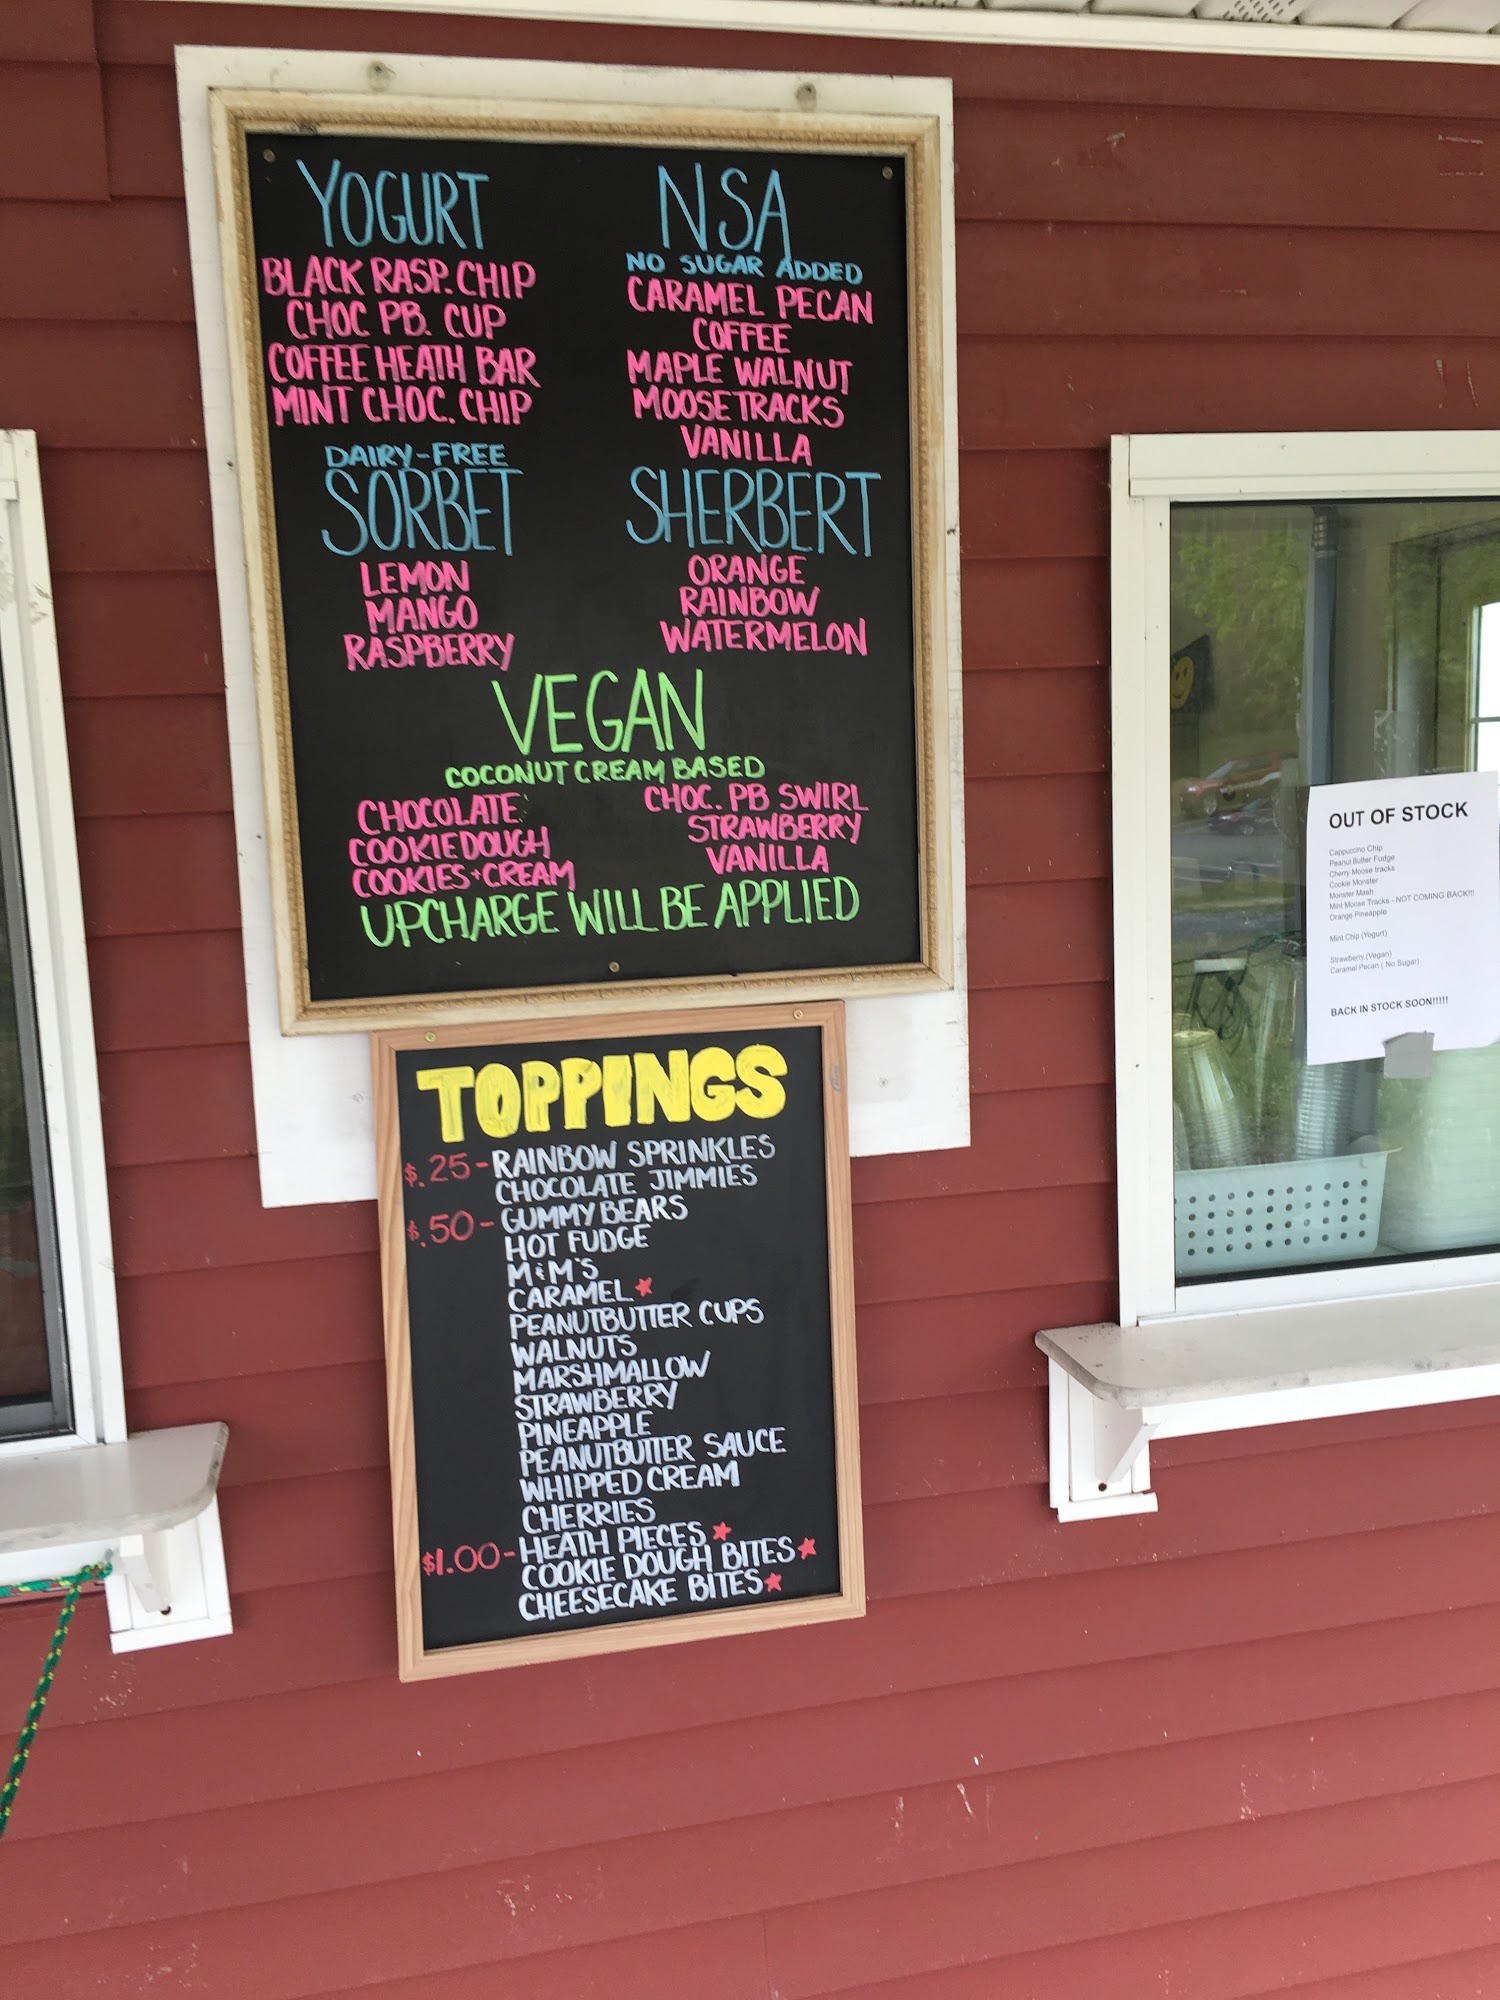 YOGURT
BLACK RASP. CHIP
CHOC PB. CUP
COFFEE HEATH BAR
MINT CHOC. CHIP
NSA
NO SUGAR ADDED
CARAMEL PECAN
COFFEE
MAPLE WALNUT
MOOSETRACKS
VANILLA
DAIRY-FREE
SORBET
LEMON
MANGO
RASPBERRY
SHERBERT
ORANGE
RAINBOW
WATERMELON
VEGAN
COCONUT CREAM BASED
CHOCOLATE
COOKIEDOUGH
COOKIES+CREAM
CHOC. PB SWIRL
STRAWBERRY
VANILLA
UPCHARGE WILL BE APPLIED
TOPPINGS
$.25-RAINBOW SPRINKLES
CHOCOLATE JIMMIES
$.50-GUMMY BEARS
HOT FUDGE
M&M'S
CARAMEL
PEANUTBUTTER CUPS
WALNUTS
MARSHMALLOW
STRAWBERRY
PINEAPPLE
PEANUTBUTTER SAUCE
WHIPPED CREAM
CHERRIES
$1.00-HEATH PIECES
COOKIE DOUGH BITES
CHEESECAKE BITES
OUT OF STOCK
Cappuccino Chip
Peanut Butter Fudge
Cherry Moose tracks
Cookie Monster
Monster Mash
Mint Moose Tracks - NOT COMING BACK!!!
Orange Pineapple
Mint Chip (Yogurt)
Strawberry (Vegan)
Caramel Pecan ( No Sugar)
BACK IN STOCK SOON!!!!!